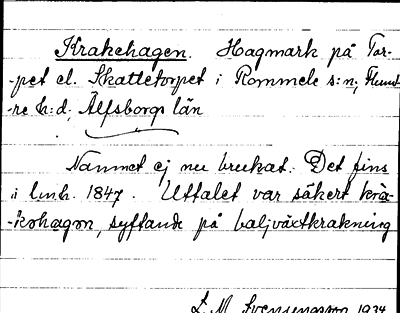 Krakehagen. Hagmark på Tor-
-pet el. Skattetorpet i Rommele s:n, Flund-
-re h:d, Älfsborgs län
Namnet ej nu brukat. Det fins
i lm.h. 1847. Uttalet var säkert krå-
-kehagen, syftande på baljväxtkrakning
L. M. Svensungsson 1934